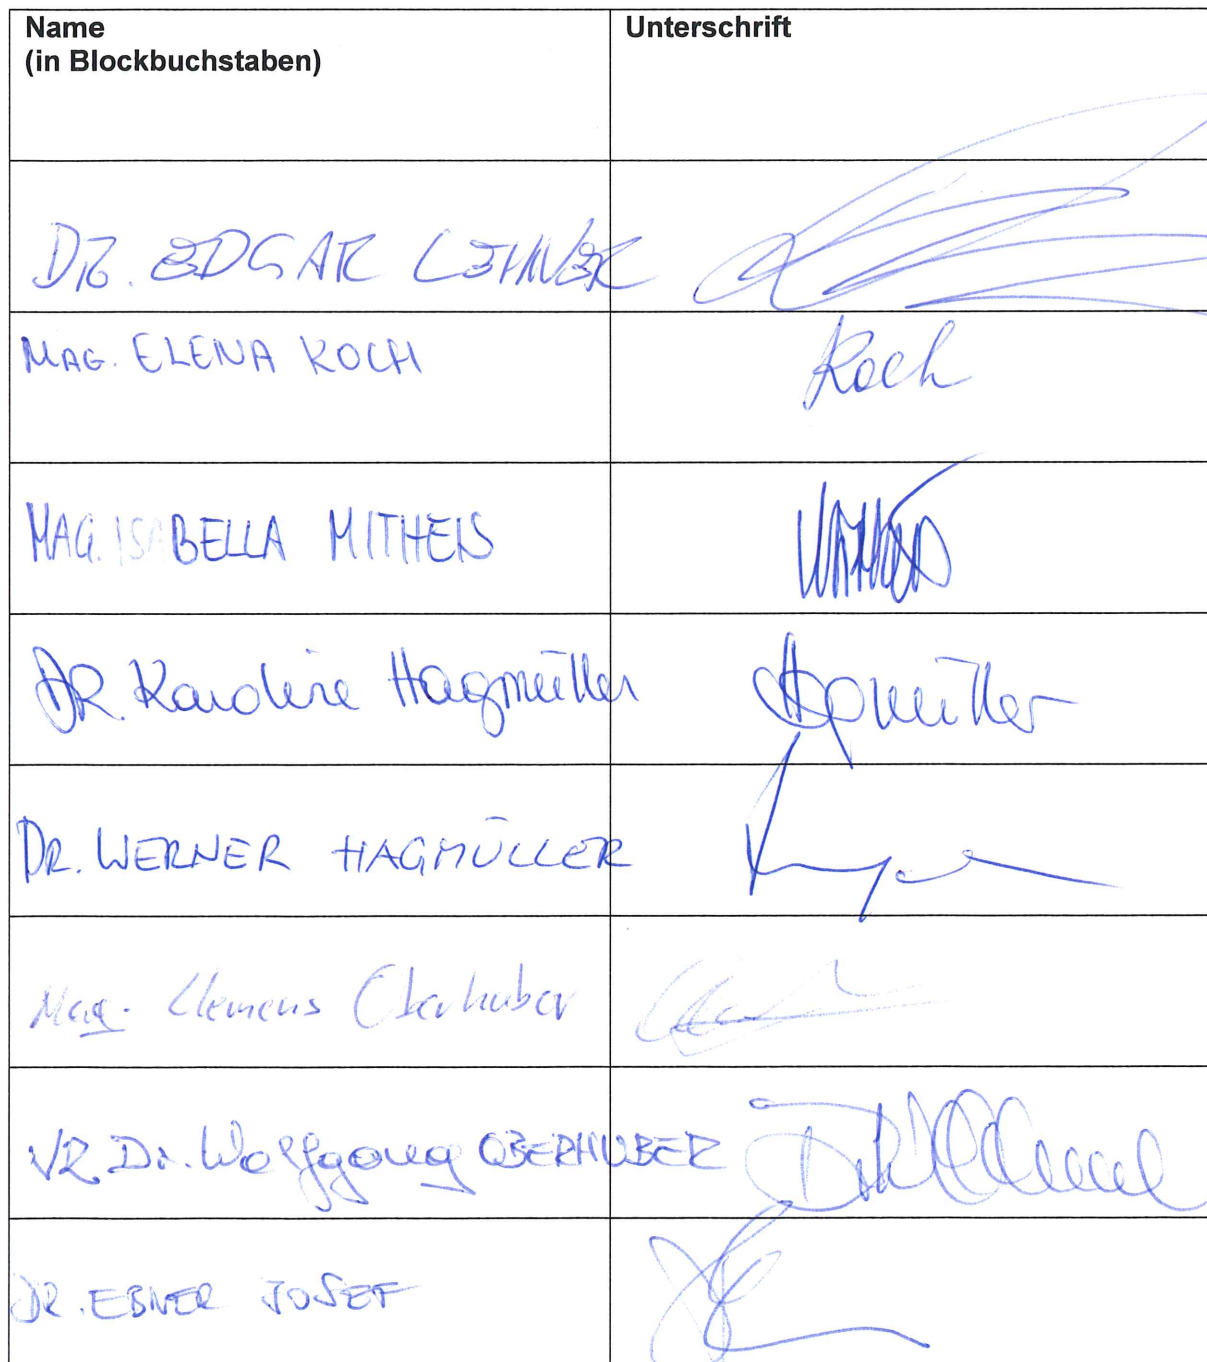 Name
(in Blockbuchstaben)
Unterschrift
DR. EDGAR LEHNER
MAG. ELENA KOCH
Koch
MAG. ISABELLA MITHEIS
DR. Karoline Hagmüller
Hagmüller
DR. WERNER HAGMÜLLER
Mag. Clemens Oberhuber
VR. Dr. Wolfgang OBERHUBER
DR. EBNER JOSEF